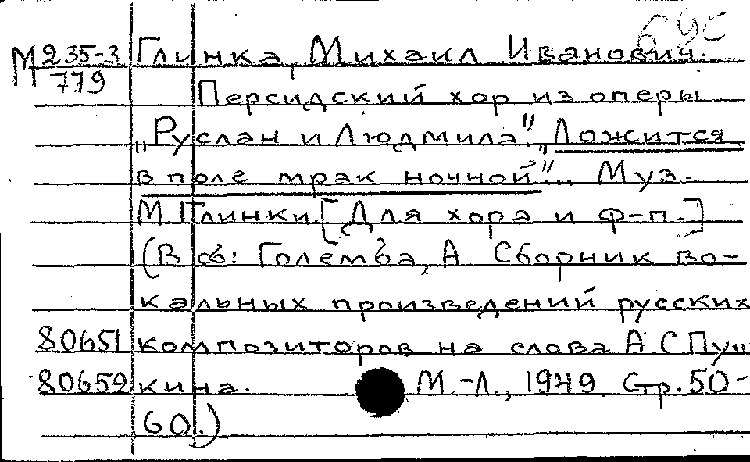 М 235-3 Глинка, Михаил Иванович.
779 Персидский хор из оперы
„Руслан и Людмила". „Ложится
в поле мрак ночной".. Муз.
М. Глинки. [Для хора и ф-п.]
(В сб: Големба, А Сборник во-
кальных произведений русских
80651 композиторов на слова А С Пуш
80652 кина. М.-Л., 1949 Стр. 50-
60.)